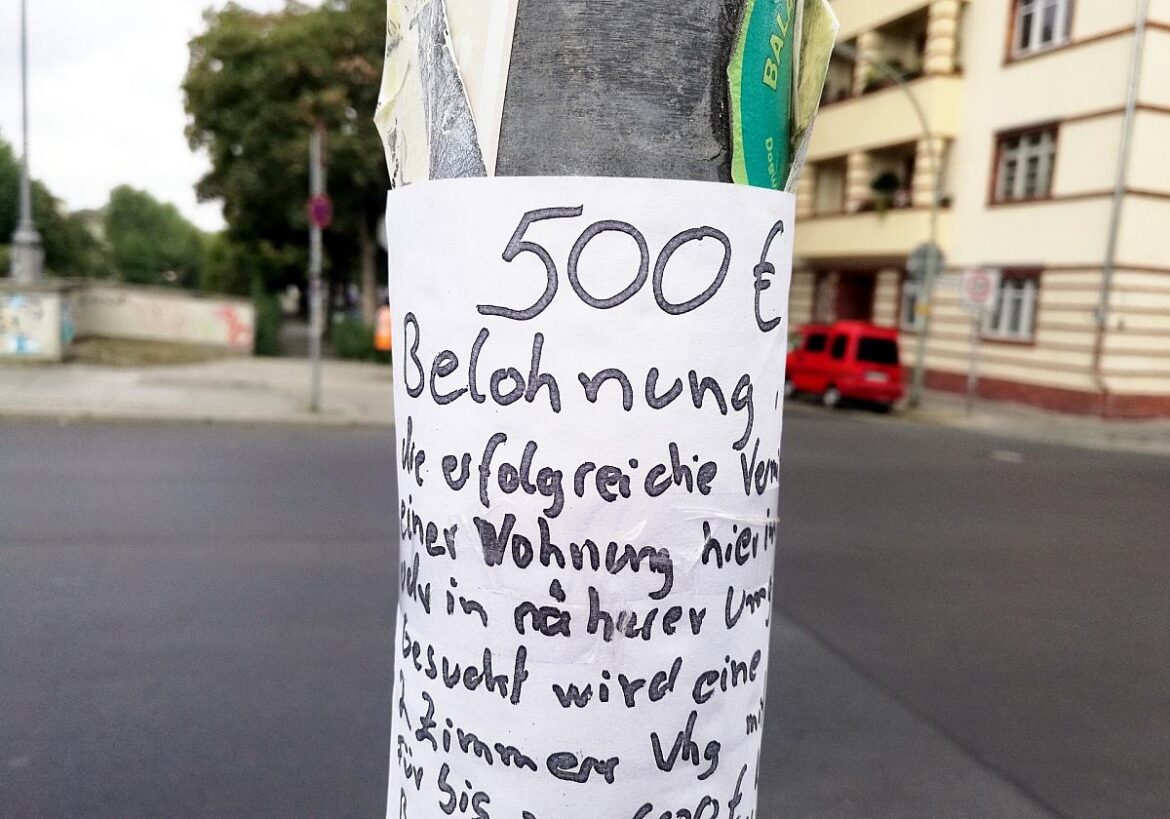 BAL
500 €
Belohnung
die erfolgreiche
einer Wohnung hier
oder in näherer
Gesucht wird eine
2 Zimmer Whg
für bis